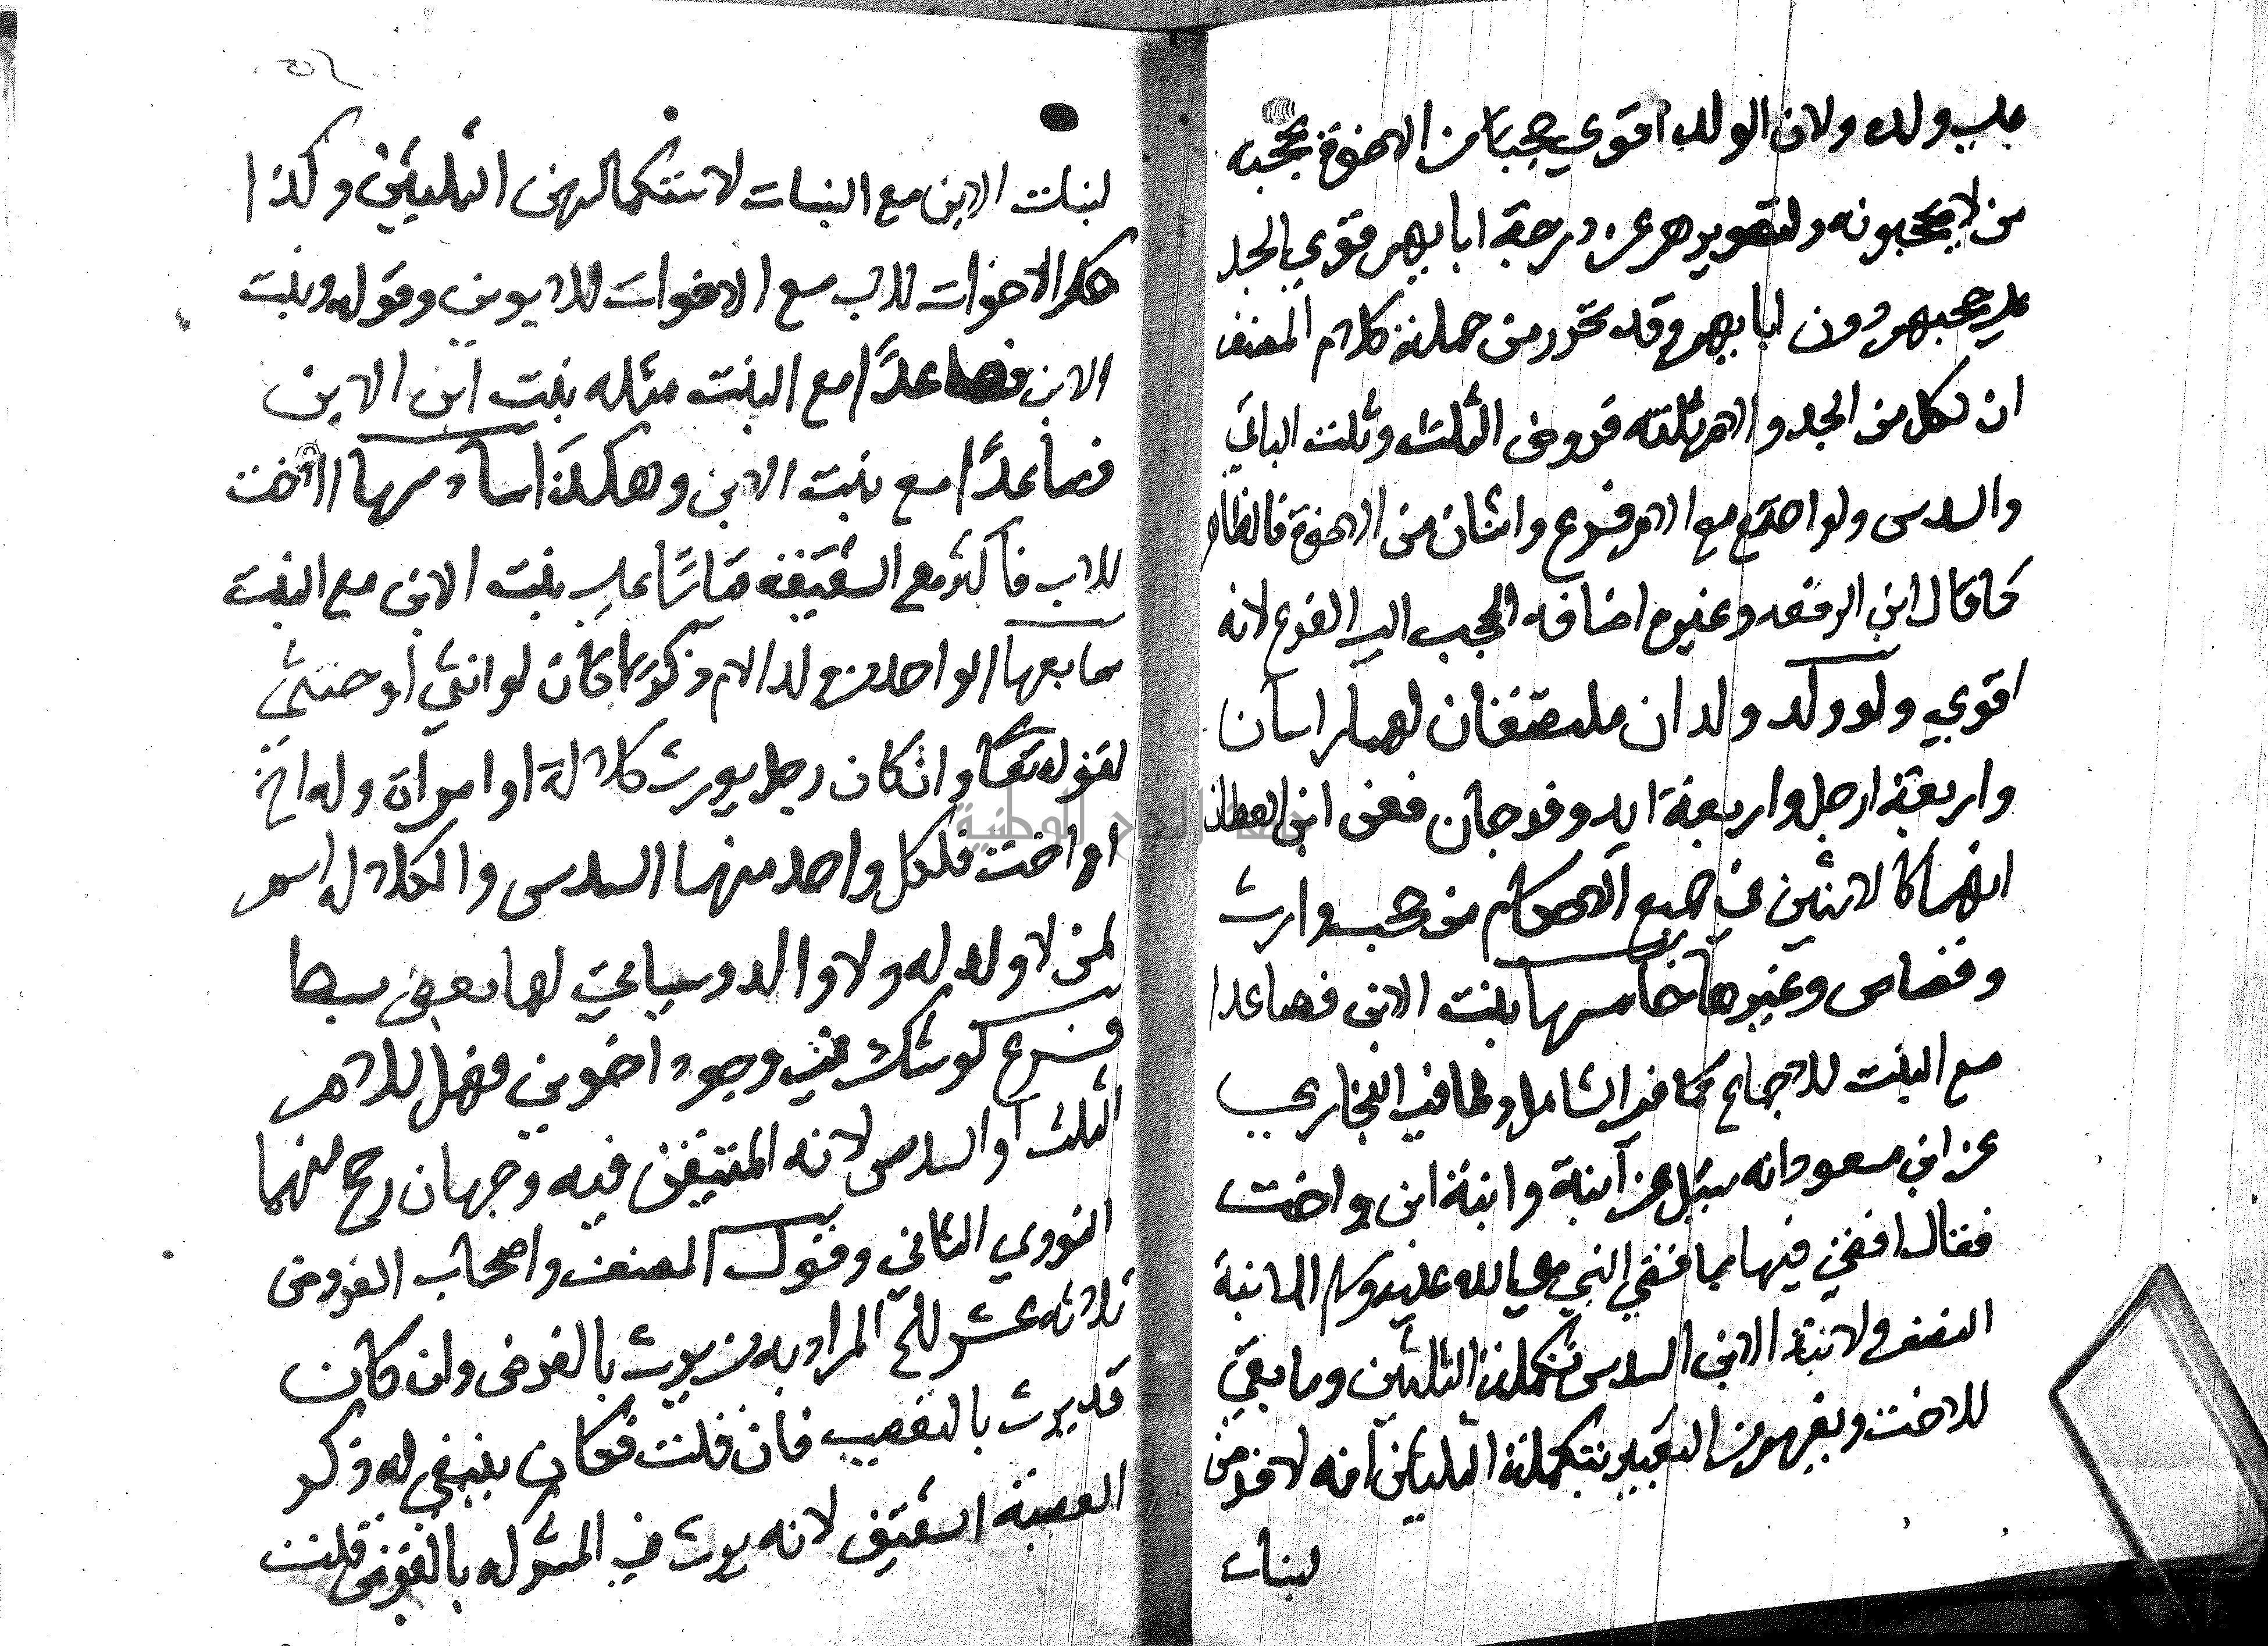 علي ولده ولان الولد اقوي حجبا من الاخوة بحجبه
من لا يحجبونه ولقصورهم عن درجة ابايهم فقوي الجد
علي حجبهم دون ابايهم وقد تحرر من جملة كلام المصنف
ان لكل من الجد والام ثلثة فروض الثلث وثلث الباقي
والسدس ولو اجتمع مع الام فرع واثنان من الاخوة فالظاهر
كما قال ابن الرفعه وغيره اضافه الحجب الي الفرع لانه
اقوي ولو ولد ولدان ملتصقان لهما راسان
واربعة ارجل واربعة ايد وفرجان فعن ابن القطان
انهما كالاثنين في جميع الاحكام من حجب وارث
وقصاص وغيرها خامسها بنت الابن فصاعدا
مع البنت للاجماع كما في الشامل ولما في البخاري
عن ابن مسعود انه سيل عن ابنة وابنة ابن واخت
فقال اقضي فيها بما قضي النبي صلي الله عليه وسلم للابنة
النصف ولابنة الابن السدس تكملة الثلثين وما بقي
للاخت ويفهم من التعبير بتكملة الثلثين انه لا فرض
لبنات
لبنات الابن مع البنات لاستكمالهن الثلثين وكذا
حكم الاخوات للاب مع الاخوات للابوين وقوله وبنت
الابن فصاعدًا مع البنت مثله بنت ابن الابن
فصاعدًا مع بنت الابن وهكذا سادسها الاخت
للاب فاكثر مع الشقيقه قياسًا علي بنت الابن مع البنت
سابعها الواحد من ولد الام ذكرًا كان او انثي او خنثي
لقوله تعالي وان كان رجل يورث كلالة او امراة وله اخ
او اخت فلكل واحد منهما السدس والكلاله اسم
لمن لا ولد له ولا والد وسياتي لها بعض بسط
فرع لو شك في وجود اخوين فهل للام
الثلث او السدس لانه المتيقن فيه وجهان رجح منهما
النووي الثاني وقول المصنف واصحاب الفروض
ثلاثه عشر للخ المراد به من يرث بالفرض وان كان
قد يرث بالتعصيب فان قلت فكان ينبغي له ذكر
العصبة الشقيق لانه يرث في المشركه بالفرض قلت
جامعة النجاح الوطنية